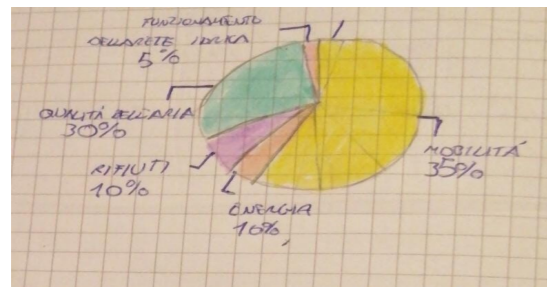 FUNZIONAMENTO
DELLA RETE IDRICA
5%
QUALITÁ DELL'ARIA
30%
RIFIUTI
10%
ENERGIA
10%
MOBILITÁ
35%